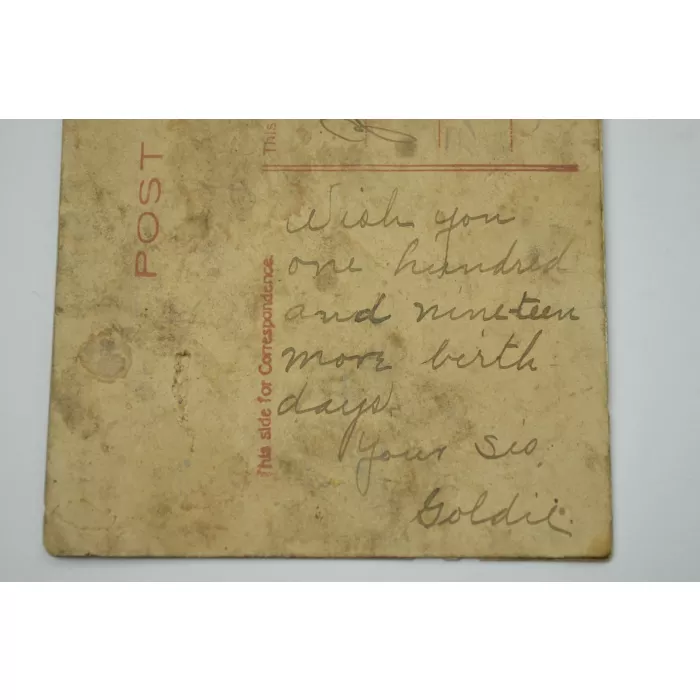 POST
This
This side for Correspondence.
Wish you
one hundred
and nineteen
more birth-
days.
Your Sis,
Goldie.